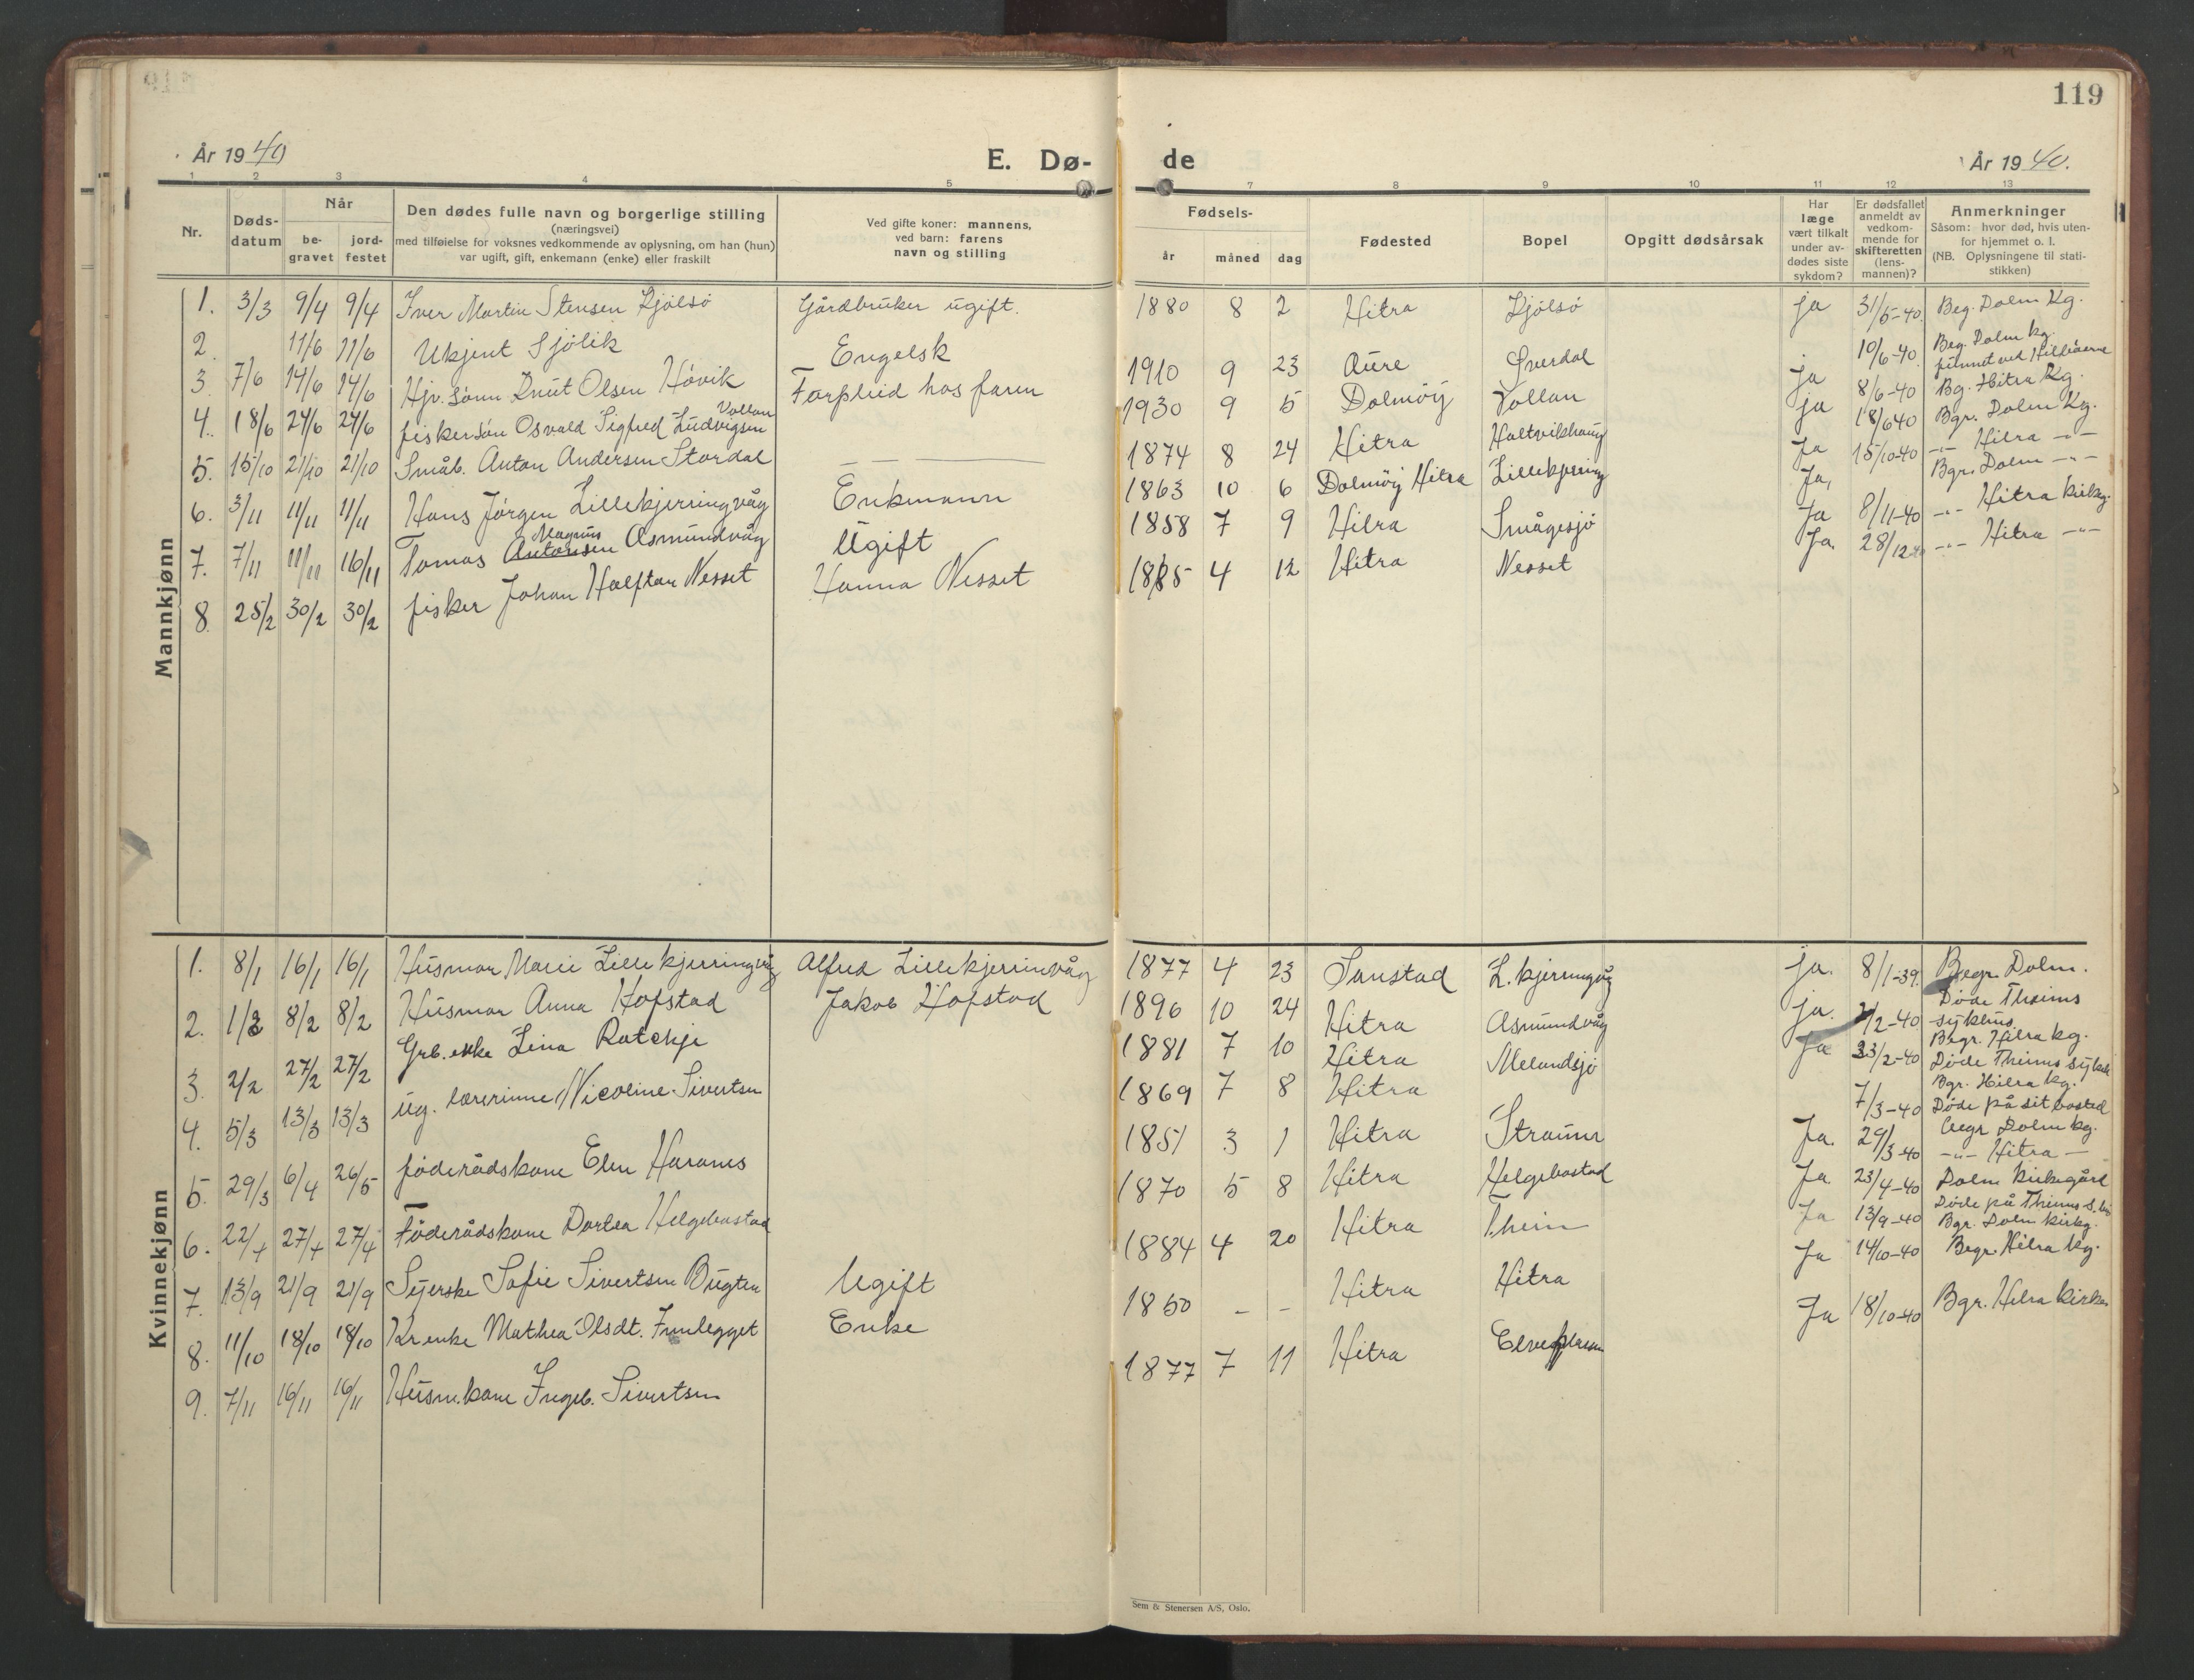 119
År 1940
E. Dø-
de
År 1940.
1 2 3 4 5 7 8 9 10 11 12 13
Nr.
Døds-
datum
Når
be-
gravet
jord-
festet
Den dødes fulle navn og borgerlige stilling
(næringsvei)
med tilføielse for voksnes vedkommende av oplysning, om han (hun)
var ugift, gift, enkemann (enke) eller fraskilt
Ved gifte koner: mannens,
ved barn: farens
navn og stilling
Fødsels-
år måned dag
Fødested
Bopel
Opgitt dødsårsak
Har
læge
vært tilkalt
under av-
dødes siste
sykdom?
Er dødsfallet
anmeldt av
vedkom-
mende for
skifteretten
(lens-
mannen)?
Anmerkninger
Såsom: hvor død, hvis uten-
for hjemmet o. l.
(NB. Oplysningene til stati-
stikken)
Mannkjønn
1. 3/3 9/4 9/4 Iver Martin Stensen Kjölsö Gårdbruker ugift. 1880 8 2 Hitra Kjölsö ja 31/5-40 Beg. Dolm Kg.
2. 11/6 11/6 Ukjent Sjölik Engelsk 10/6-40 Beg. Dolm kg.
funnet ved
3. 7/6 14/6 14/6 Hjv. sönn Knut Olsen Hövik Forpleid hos faren 1910 9 23 Aure Sverdal ja 8/6-40 Bg. Hitra Kg.
4. 18/6 24/6 24/6 fiskersön Osvald Sigfred Ludvigsen Vollan 1930 9 5 Dolmöy Vollan ja 18/6 40 Bgr. Dolm Kg.
5. 15/10 21/10 21/10 Småb. Anton Andersen Stordal — 1874 8 24 Hitra Haltvikhaug Ja 15/10-40 -"- Hitra -"-
6. 3/11 11/11 11/11 Hans Jörgen Lillekjerringvåg Enkmann 1863 10 6 Dolmöy Hitra Lillekjerring Ja, Bgr. Dolm -"-
7. 7/11 11/11 16/11 Tomas Antonsen Magnus Asmundvåg Ugift 1858 7 9 Hitra Smågesjö Ja 8/11-40 -"- Hitra kirkg.
8. 25/2 30/2 30/2 fisker Johan Halftan Nesset Hanna Nesset 1885 4 12 Hitra Nesset Ja. 28/12 40 -"- Hitra -"-
Kvinnekjønn
1. 8/1 16/1 16/1 Husmor Marie Lillekjerringvåg Alfred Lillekjerrinvåg 1877 4 23 Sanstad L.kjerringvåg ja. 8/1-39. Begr. Dolm.
2. 1/2 8/2 8/2 Husmor Anna Hofstad Jakob Hofstad 1896 10 24 Hitra Asmundvåg ja. 2/2-40 Döde Theims
sykhus.
Begr. Hitra kg.
3. 2/2 27/2 27/2 Grb. enke Lina Ratchje 1881 7 10 Hitra Melandsjö Ja 23/2-40 Döde Theims sykeh
Bgr. Hitra kg.
4. 5/3 13/3 13/3 ug. lærerinne Nicoline Sivertsen 1869 7 8 Hitra 7/3-40 Döde på sit bosted
Begr Dolm kg.
5. 29/3 6/4 26/5 föderådskone Elen Haranes 1851 3 1 Hitra Straumr Ja. 29/3-40 -"- Hitra -
6. 22/4 27/4 27/4 Föderådskone Dortea Helgebostad 1870 5 8 Hitra Helgebostad Ja 23/4-40 Dolm Kirkegård
7. 13/9 21/9 21/9 Syerske Sofie Sivertsen Bugten Ugift 1884 4 20 Hitra Theim Ja 13/9-40 Döde på Theims S.
Bgr. Dolm kirkg.
8. 11/10 18/10 18/10 Kr enke Mathea Olsdt. Funlegget Enke 1850 - - Hitra Hitra Ja 14/10-40 Begr. Hitra kg.
9. 7/11 16/11 16/11 Husm.kone Ingeb. Sivertsen 1877 7 11 Hitra Ja 18/10-40 Bgr. Hitra kirke
Sem & Stenersen A/S, Oslo.